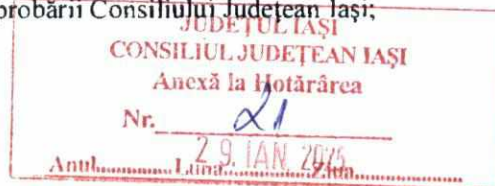 probării Consiliului Județean Iași;
JUDEȚUL IAȘI
CONSILIUL JUDEȚEAN IAȘI
Anexă la Hotărârea
Nr. 21
29. IAN. 2025
Anul........ Luna........ Ziua........